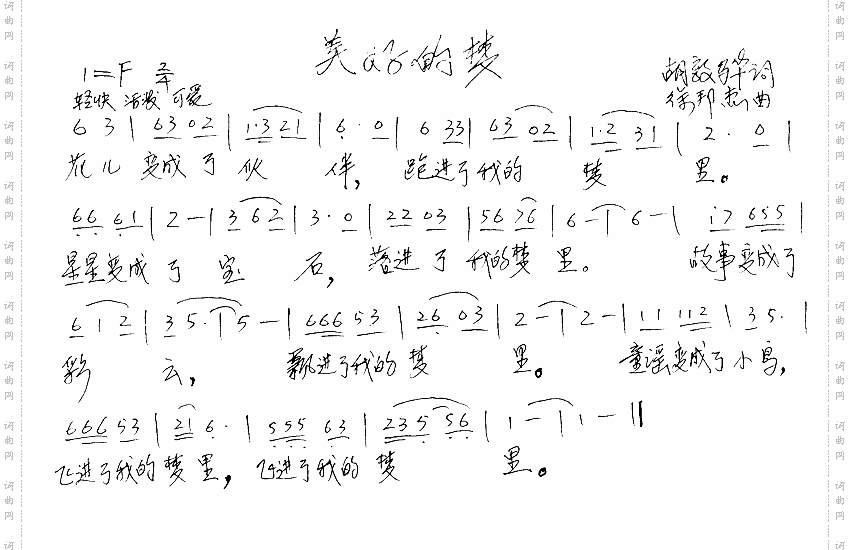 美好的梦
1=F 2/4
胡敦骅词
轻快 活泼 可爱
徐邦杰曲
6 3 | 63 02 | 1·3 21 | 6· 0 | 6 33 | 63 02 | 1·2 31 | 2· 0 |
花儿 变成了伙 伴, 跑进了我的 梦 里。
66 61 | 2 - | 3 62 | 3· 0 | 22 03 | 56 76 | 6 - | 6 - | i7 655 |
星星变成了 宝 石, 落进了 我的梦 里。 故事变成了
6 1 2 | 3 5· | 5 - | 666 53 | 26 03 | 2 - | 2 - | 11 112 | 35· |
彩 云, 飘进了我的 梦 里。 童谣变成了小鸟,
666 53 | 21 6· | 555 63 | 235 56 | 1 - | 1 - ||
飞进了我的梦里, 飞进了我的 梦 里。
词曲网